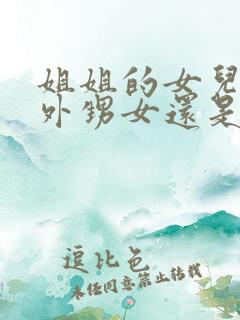 姐姐的女兒
外甥女還是
逗比色
未经同意禁止转载